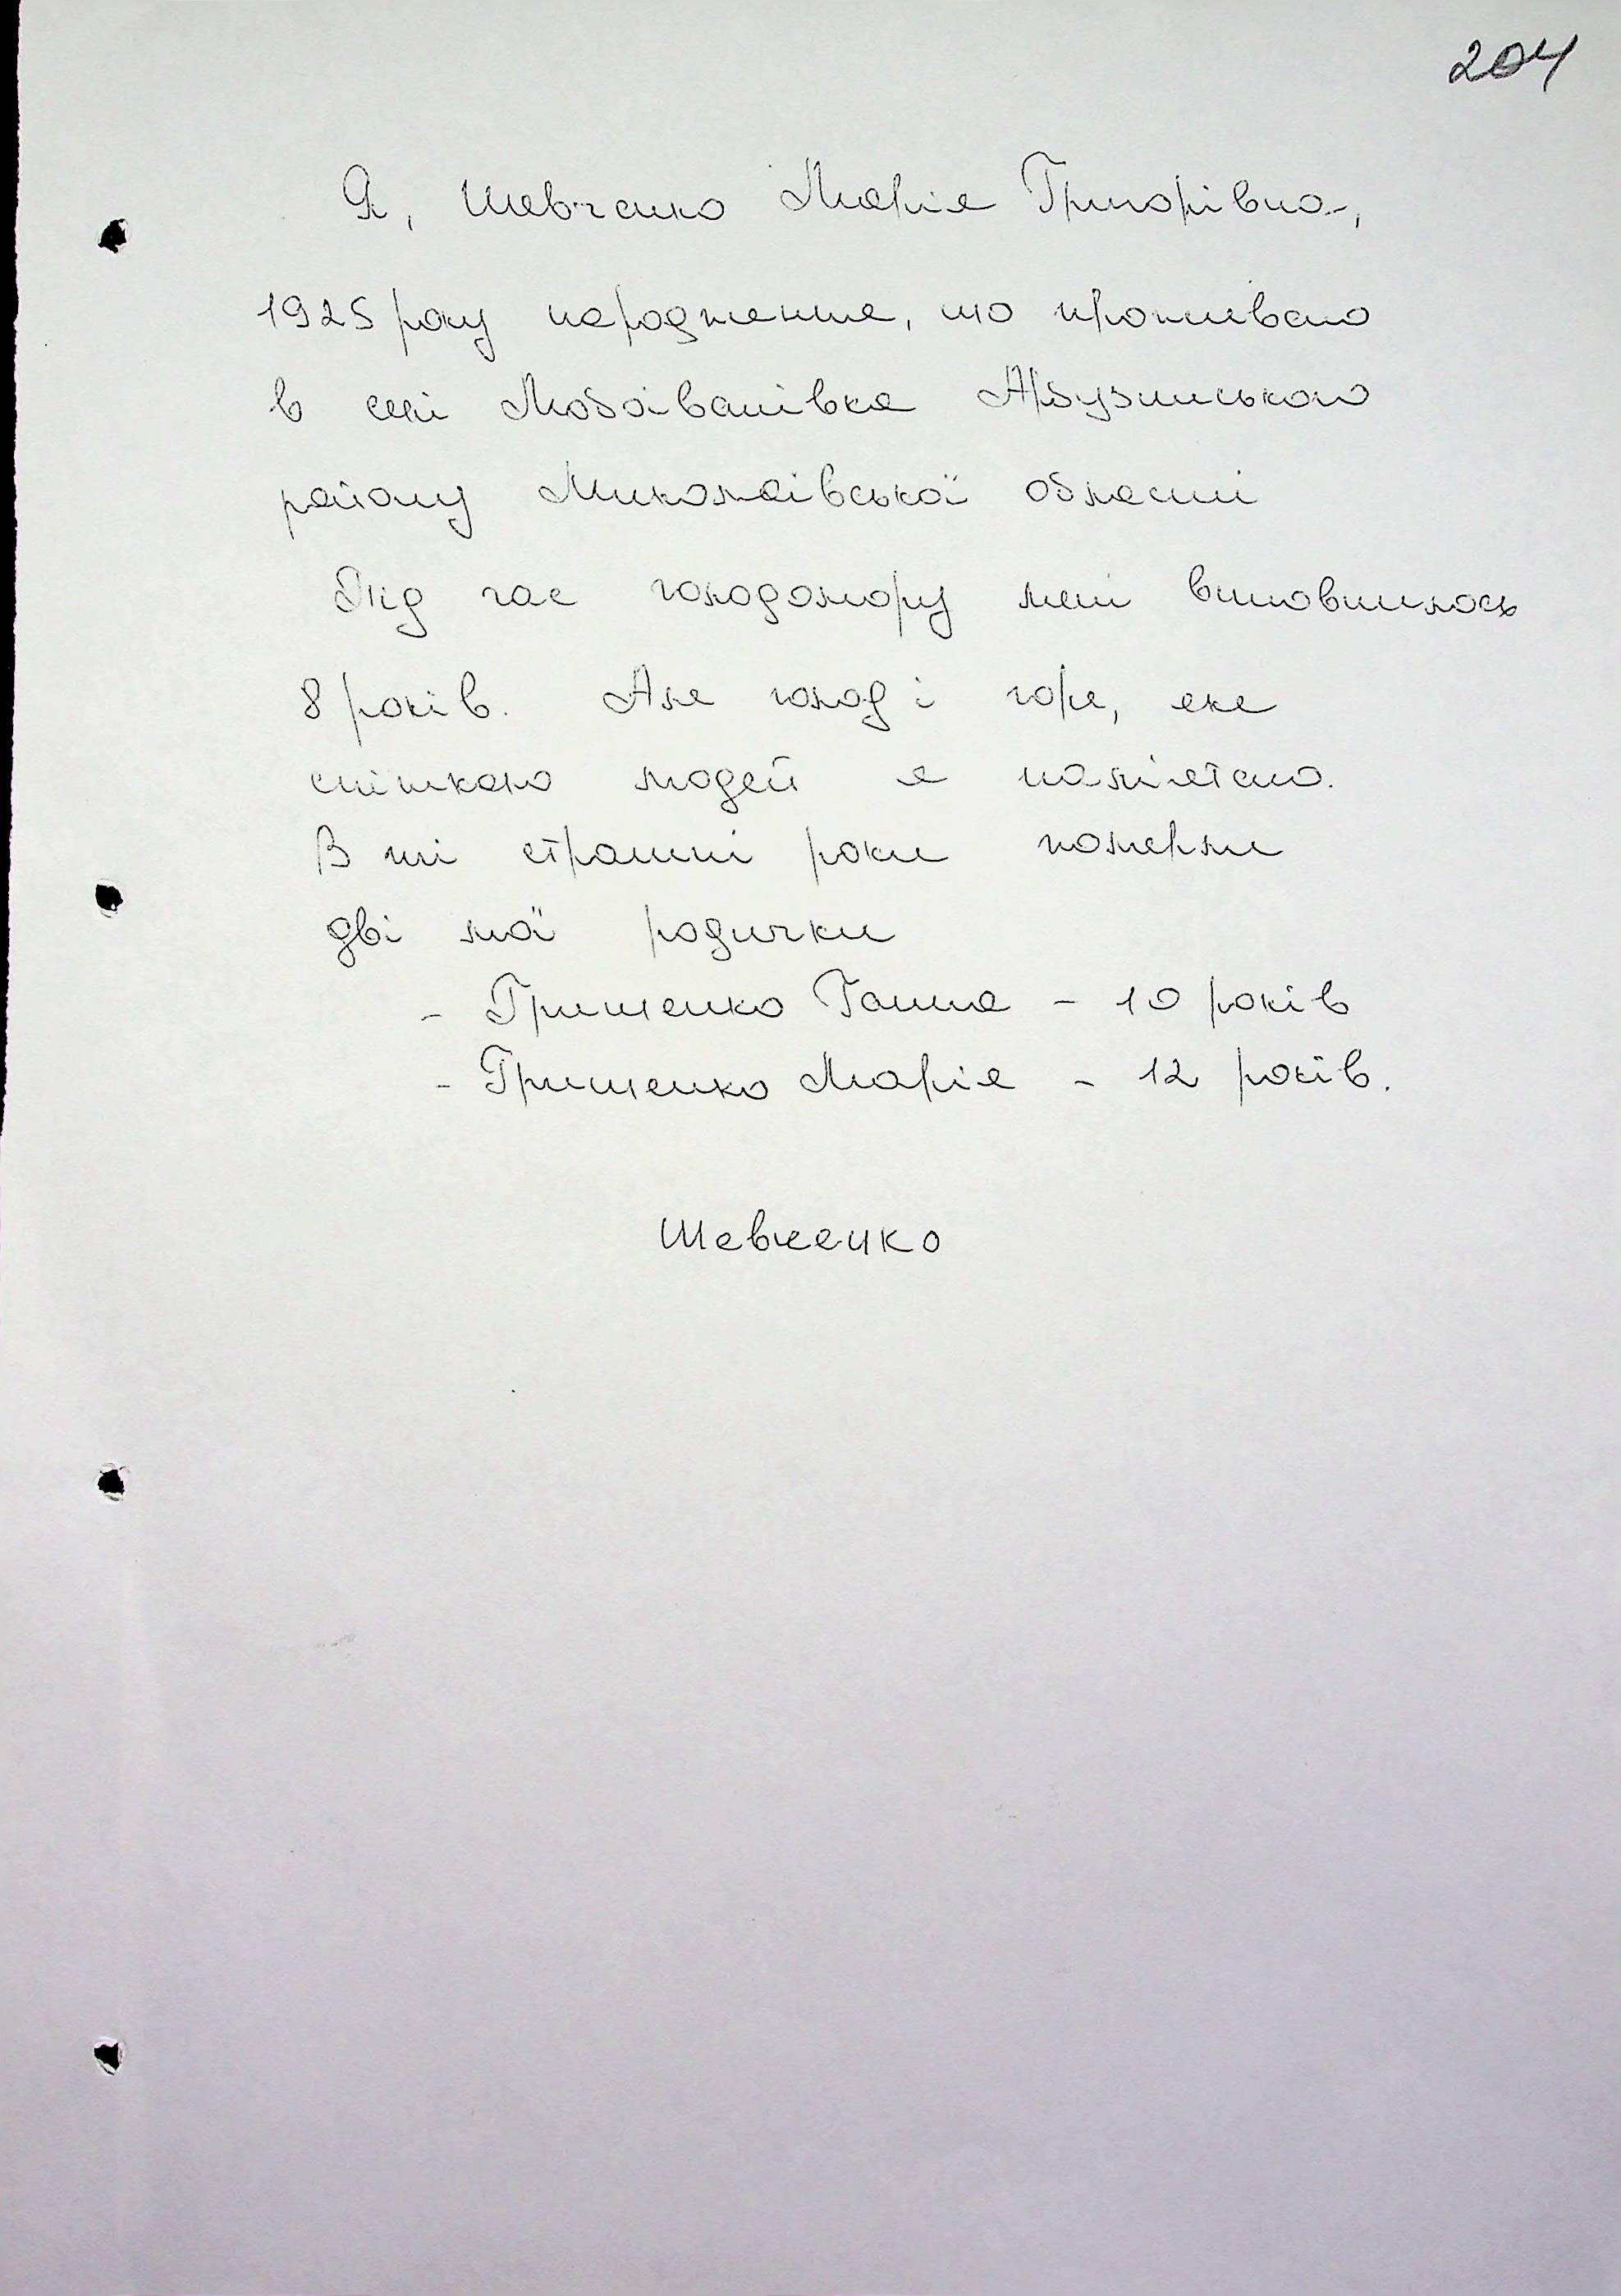 204
Я, Шевченко Марія Григорівна,
1925 року народження, що проживаю
в селі Любоіванівка Арбузинського
району Миколаївської області
Під час голодомору мені виповнилось
8 років. Але голод і горе, яке
спіткало людей я пам'ятаю.
В ті страшні роки померли
дві мої родички
- Грищенко Ганна - 10 років
- Грищенко Марія - 12 років.
Шевченко